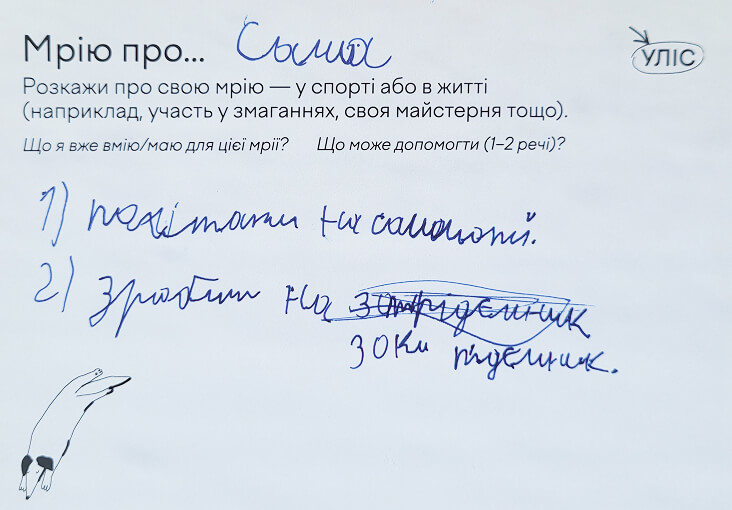 Мрію про... Сьома
УЛІС
Розкажи про свою мрію — у спорті або в житті
(наприклад, участь у змаганнях, своя майстерня тощо).
Що я вже вмію/маю для цієї мрії? Що може допомогти (1–2 речі)?
1) политати на самольоті.
2) зробити на
30 Ки підємник.